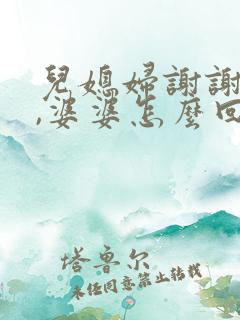 兒媳婦謝謝
,婆婆怎麼回
塔魯尔
未经同意禁止转载